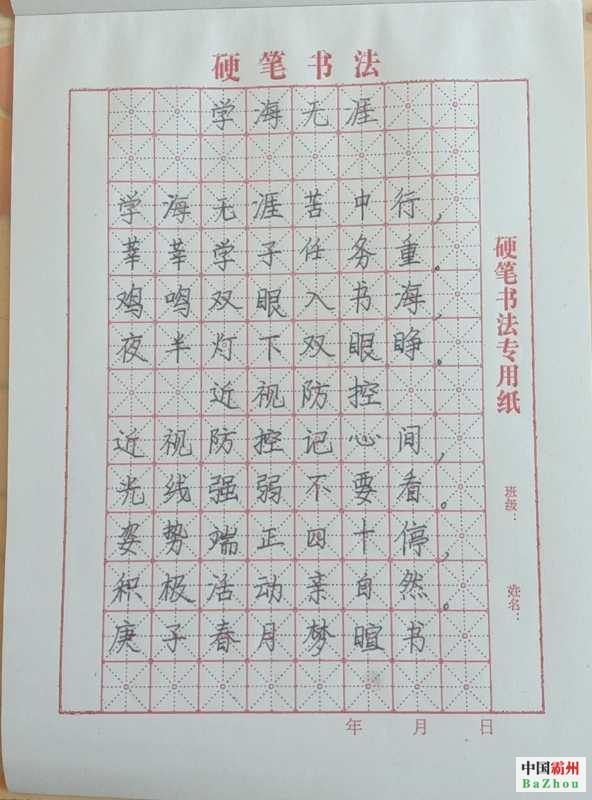 硬笔书法
学海无涯
学海无涯苦中行，
莘莘学子任务重。
鸡鸣双眼入书海，
夜半灯下双眼睁。
近视防控
近视防控记心间，
光线强弱不要看。
姿势端正四十停，
积极活动亲自然。
庚子春月梦暄书
硬笔书法专用纸
班级：
姓名：
年 月 日
中国霸州
BaZhou